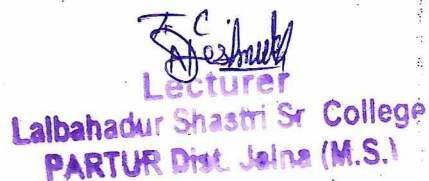 T C
Deshmukh
Lecturer
Lalbahadur Shastri Sr College
PARTUR Dist. Jalna (M.S.)